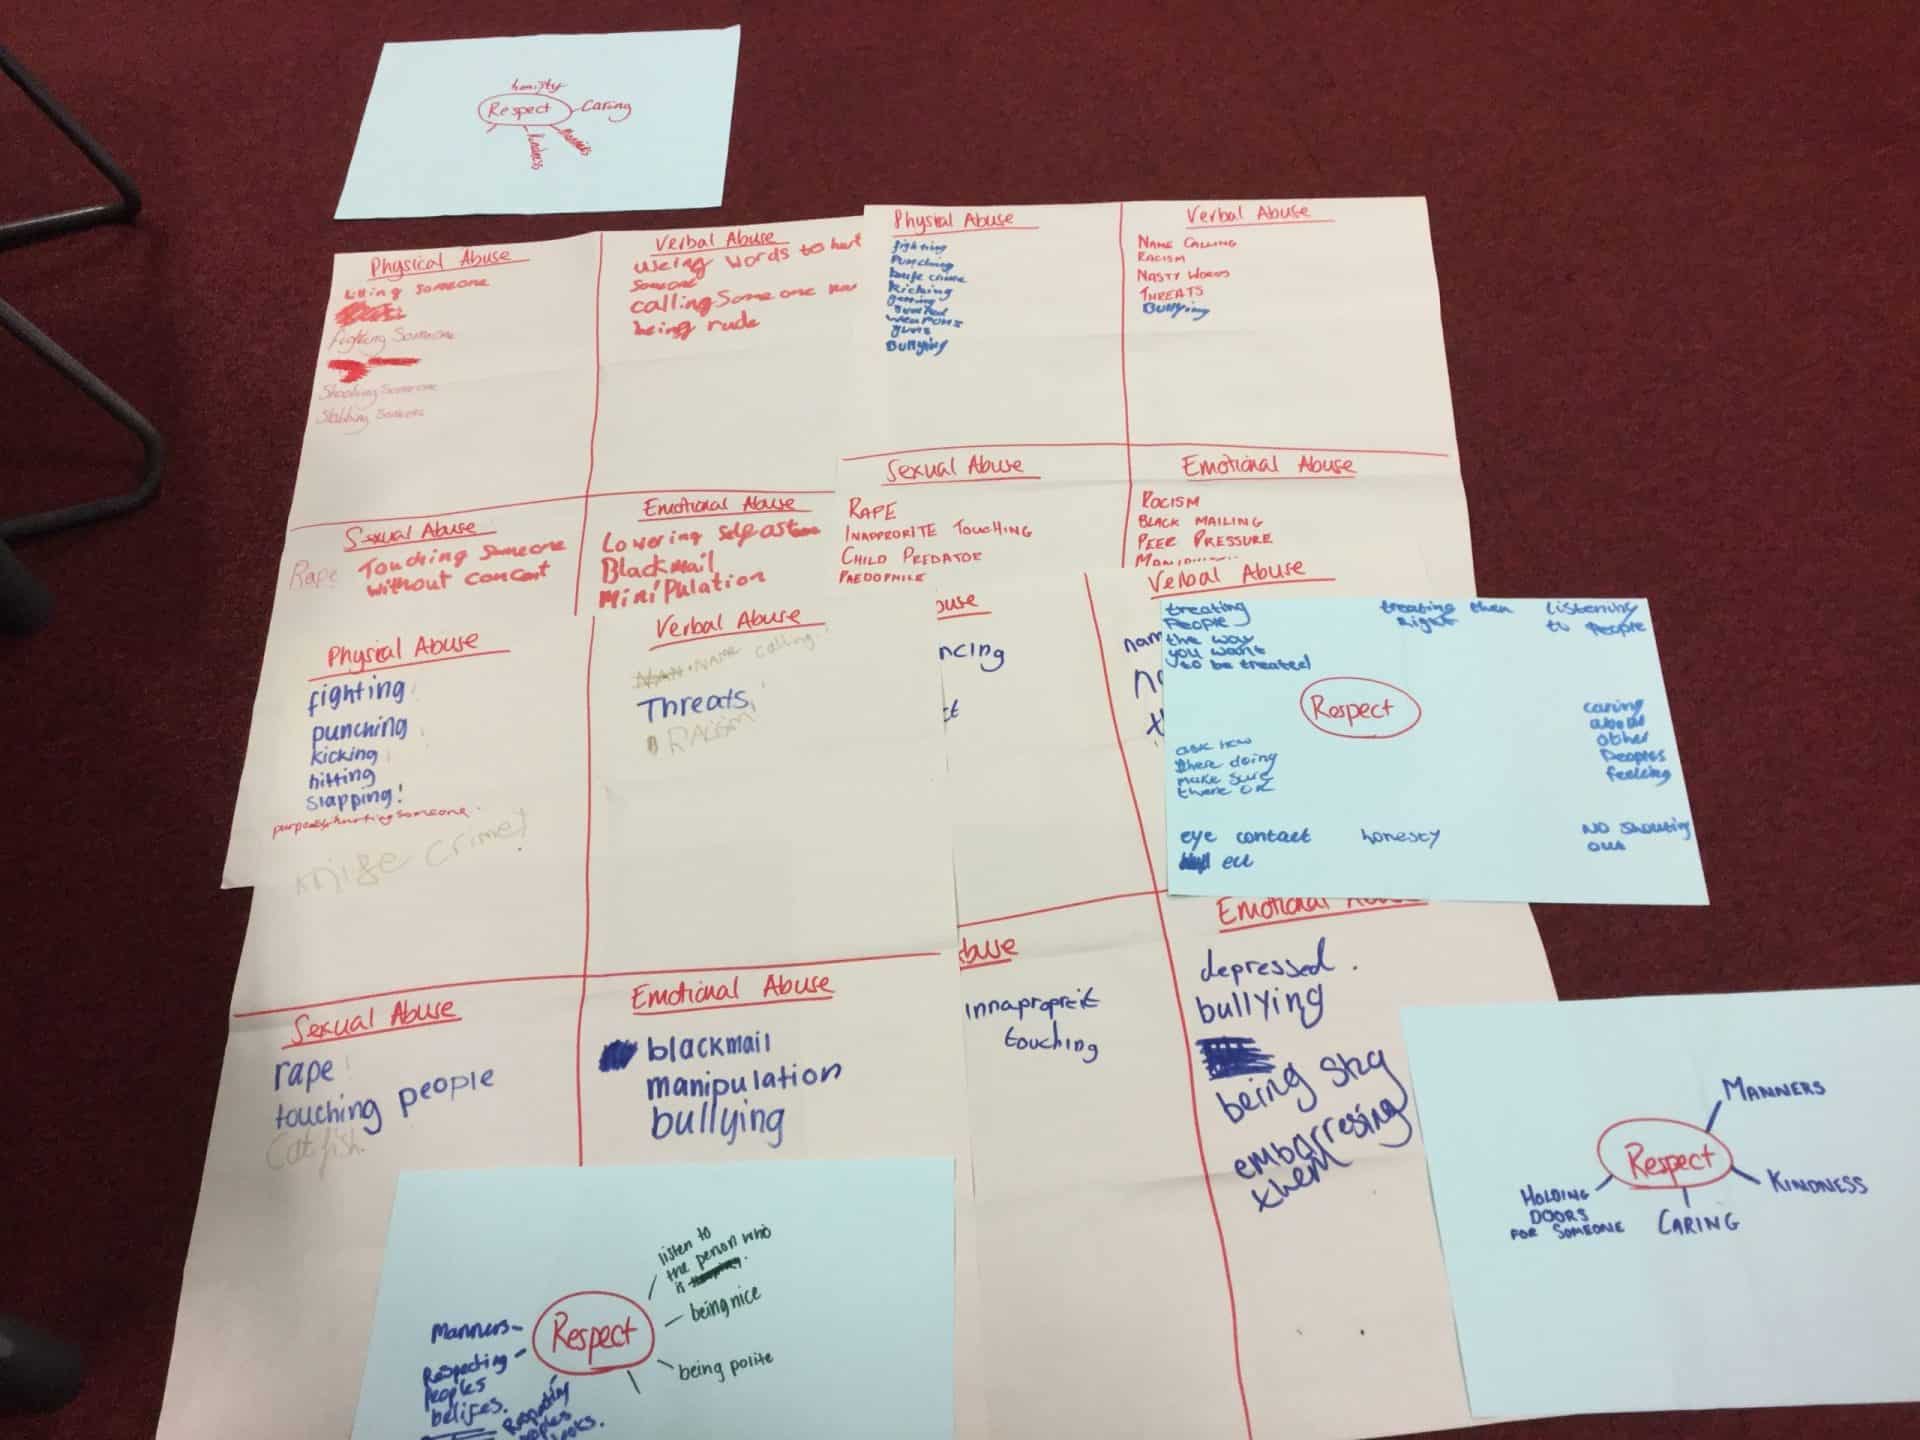 honisty
Respect
Caring
kindness
Manners
Physical Abuse
killing someone
fighting someone
Shooting Someone
Stabbing Someone
Verbal Abuse
useing words to hurt
someone
calling someone
being rude
Sexual Abuse
Rape
Touching Someone
without concent
Emotional Abuse
Lowering
Blackmail
MiniPulation
Physical Abuse
fighting
Punching
knife crime
kicking
getting
weapons
guns
Bullying
Verbal Abuse
NAME CALLING
RACISM
NASTY WORDS
THREATS
Bullying
Sexual Abuse
RAPE
INAPPRORITE TOUCHING
CHILD PREDATOR
PAEDOPHILE
Emotional Abuse
RACISM
BLACK MAILING
PEER PRESSURE
Physical Abuse
fighting!
punching!
kicking!
hitting
slapping!
hurting someone.
knife crime!
Verbal Abuse
NAME calling!
Threats!
RACISM!
Sexual Abuse
rape!
touching people
Catfish.
Emotional Abuse
blackmail
manipulation
bullying
buse
ncing
ct
Verbal Abuse
nam
buse
innapropreit
touching
Emotional Abuse
depressed.
bullying
being shy
embarresing
them
treating
People
the way
you want
to be treated
treating them
right
listening
to People
Respect
caring
about
other
Peoples
feeling
ask how
there doing
make sure
there ok
eye contact
honesty
NO Shouting
out
Respect
MANNERS
KINDNESS
CARING
HOLDING
DOORS
FOR SOMEONE
listen to
the person who
is
being nice
being polite
Respect
Manners
Respecting
Peoples
belifes.
Respecting